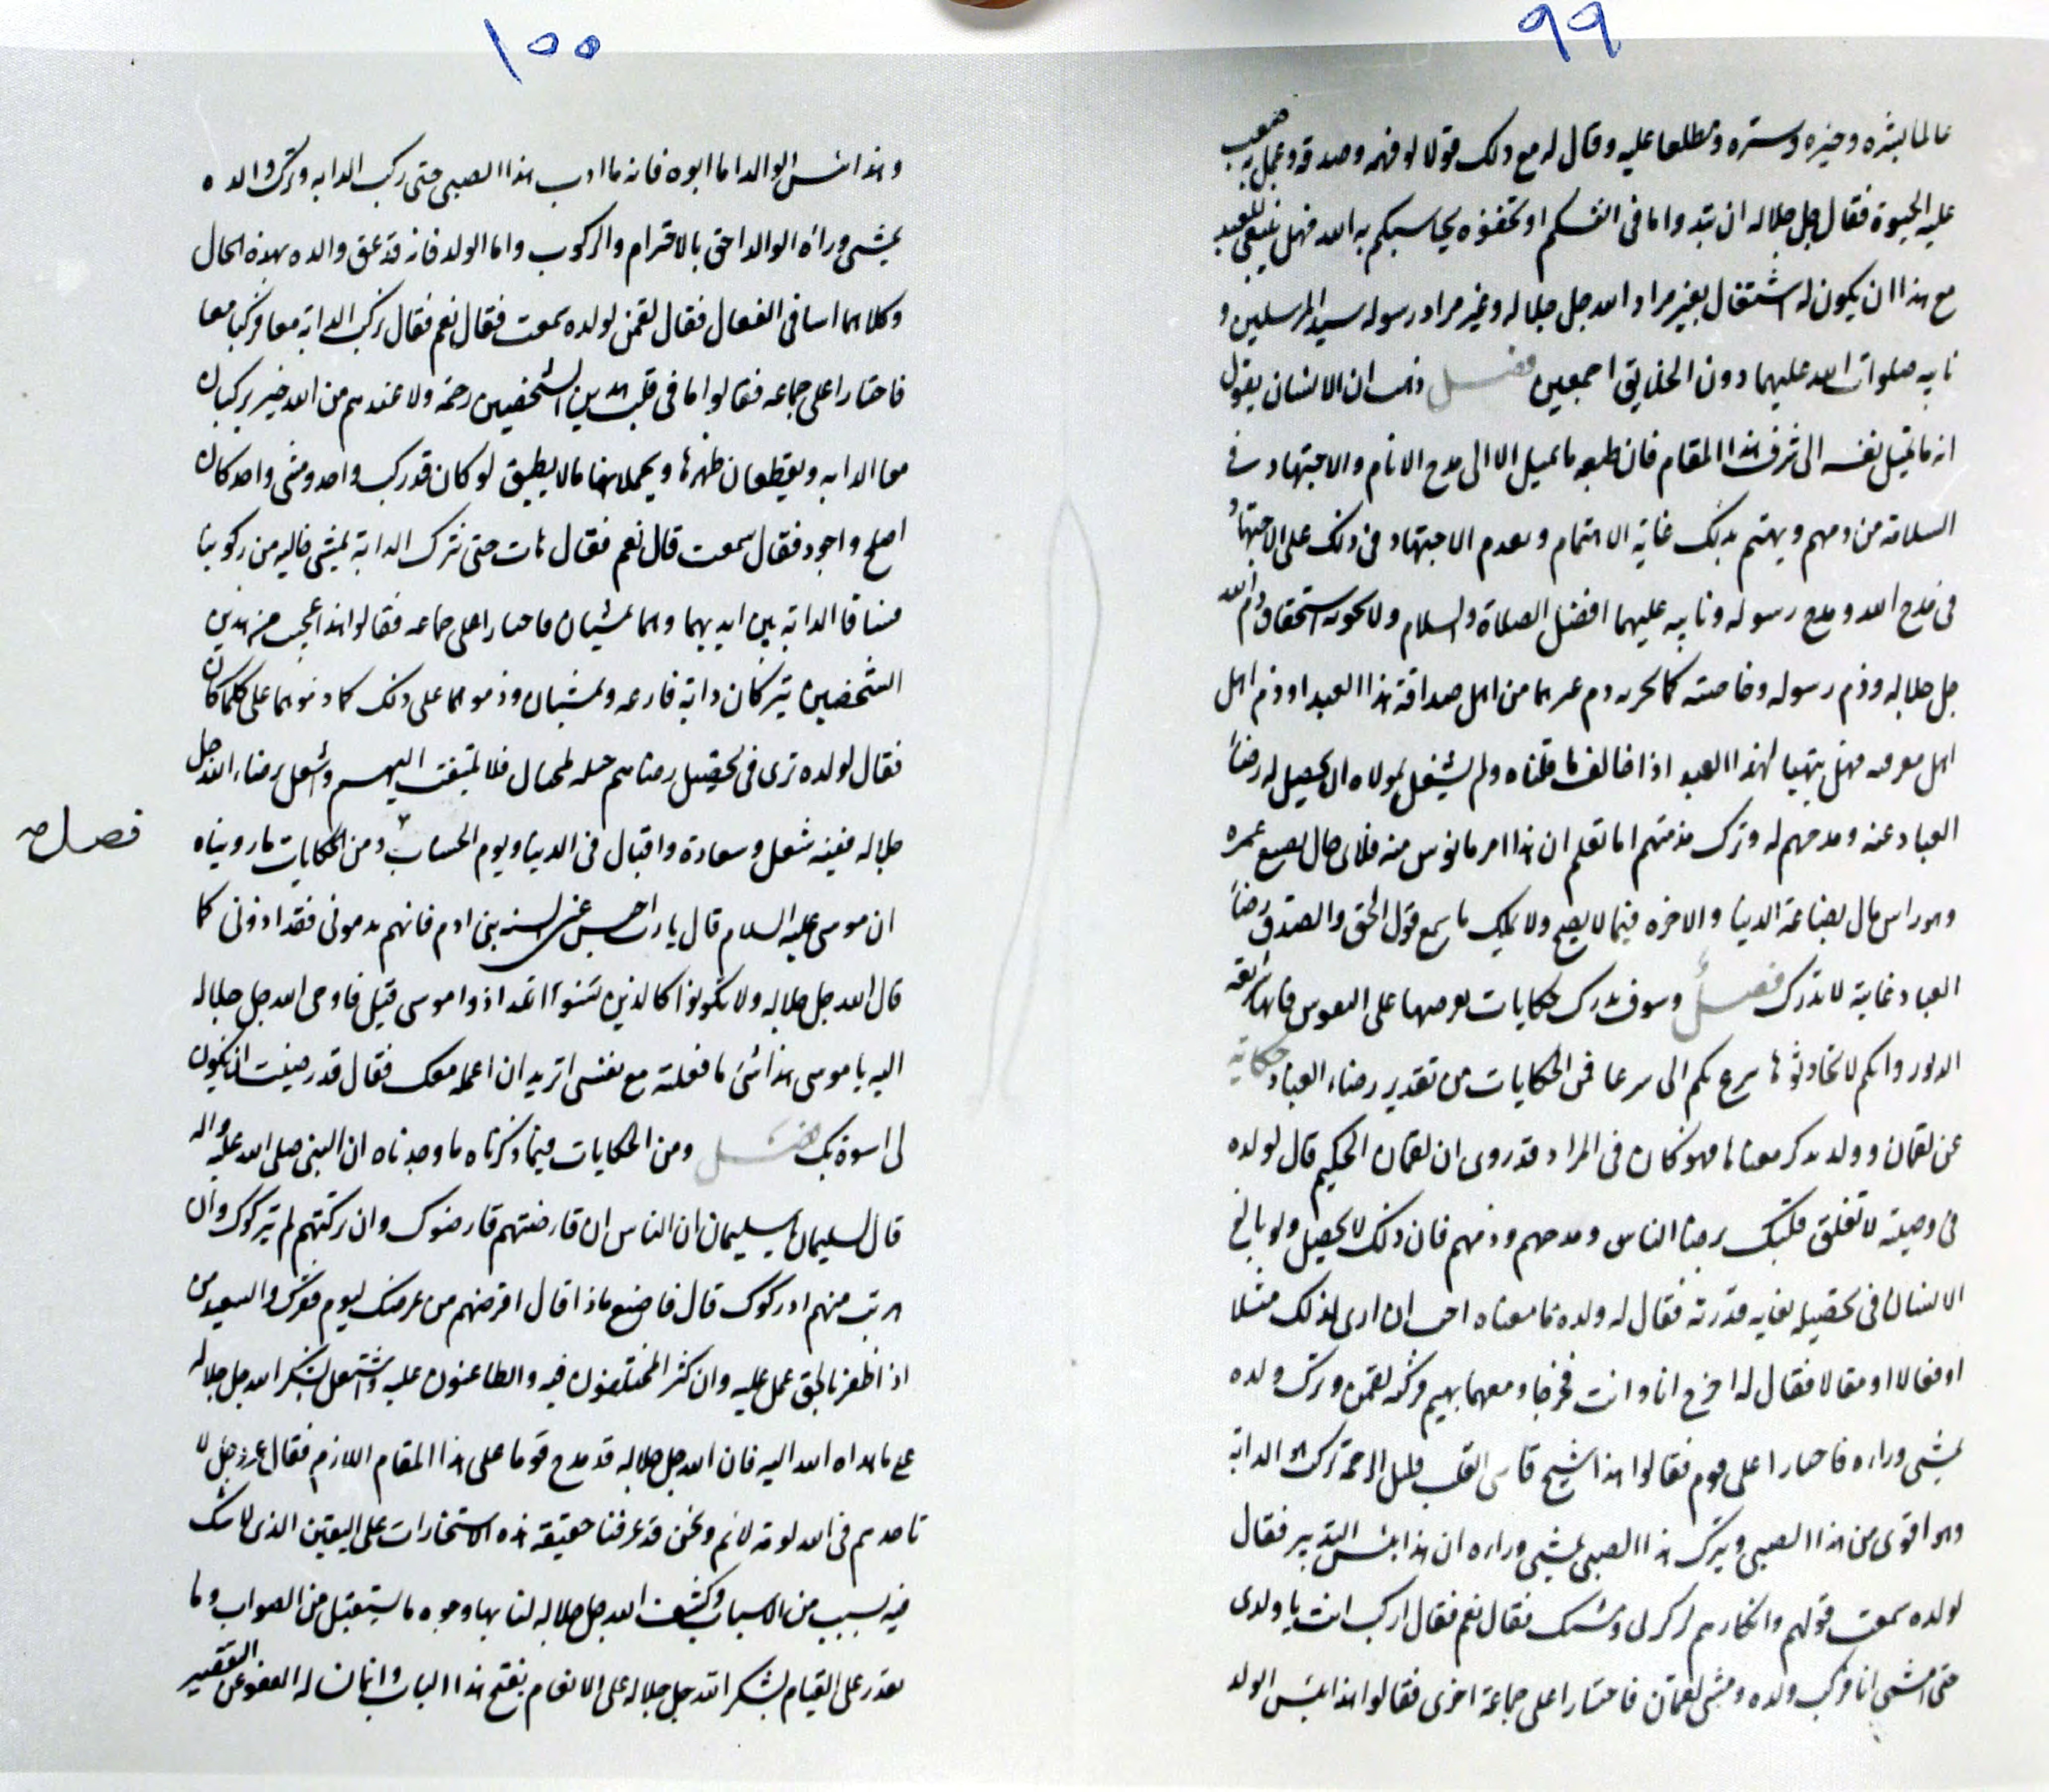 ٩٩
عالما بشره وخيره وستره ومطلعا عليه وقال له مع ذلك قولا لو فهمه وصدقه وعمل به صعب
عليه الحيوة فقال جل جلاله ان تبدوا ما فى انفسكم او تخفوه يحاسبكم به الله فهل ينبغى للعبد
مع هذا ان يكون له اشتغال بغير مراد الله جل جلاله وغير مراد رسوله سيد المرسلين و
نايبه صلوات الله عليهما دون الخلايق اجمعين فصل وهب ان الانسان يقول
انه ما تميل نفسه الى شرف هذا المقام فان طبعه ما يميل الا الى مدح الانام والاجتهاد فى
السلامة من ذمهم ويهتم بذلك غاية الاهتمام ويعدم الاجتهاد فى ذلك على الاجتهاد
فى مدح الله ومدح رسوله ونايبه عليهما افضل الصلاة والسلام ولا يحركه استحقاق ذم الله
جل جلاله وذم رسوله وخاصته كما يحركه ذم غيرهما من اهل صداقة هذا العبد او ذم اهل
اهل معرفه فهل يتهيا لهذا العبد اذا خالف ما قلناه ولم يشتغل بمولاه ان يحصيل له رضاء
العباد عنه ومدحهم له وترك مذمتهم اما تعلم ان هذا امر مايوس منه فلاى حال يضيع عمره
وهو راس مال بضاعة الدنيا والاخره فيما لا يصح ولا يملك ما سمع قول الحق والصدق رضاء
العباد غاية لا تدرك فصل وسوف نذكر حكايات نعرضها على النفوس فانها سريعة
الدثور وانكم لا تحادثوها سرع بكم الى شر غاية فمن الحكايات من تقدير رضاء العباد حكاية
عن لقمان وولده نذكر معناها فهو كان فى المراد فقد روى ان لقمان الحكيم قال لولده
فى وصيته لا تعلق قلبك برضا الناس ومدحهم وذمهم فان ذلك لا يحصيل ولو بالغ
الانسان فى تحصيله بغاية قدرته فقال له ولده ما معناه احب ان ارى لذلك مثلا
او فعالا او مقالا فقال له اخرج انا وانت فخرجا ومعهما بهيم فركبه لقمن وترك ولده
يمشى وراءه فاجتازا على قوم فقالوا هذا شيخ قاسى القلب قليل الرحمة تركب هو الدابة
وهو اقوى من هذا الصبى ويترك هذا الصبى يمشى وراءه ان هذا بئس التدبير فقال
لولده سمعت قولهم وانكارهم لركوبى ومشيك فقال نعم فقال اركب انت يا ولدى
حتى امشى انا فركب ولده ومشى لقمان فاجتازا على جماعة اخرى فقالوا هذا بئس الولد
١٠٠
وهذا بئس الوالد اما ابوه فانه ما ادب هذا الصبى حتى ركب الدابه وترك والده
يمشى وراءه الوالد احق بالاحترام والركوب واما الولد فانه قد عق والده بهذه الحال
وكلاهما اسا فى الفعال فقال لقمن لولده سمعت فقال نعم فقال نركب الدابة معا فركبا معا
فاجتازا على جماعه فقالوا ما فى قلب هذين الشخصين رحمه ولا عندهم من الله خير يركبان
معا الدابه ويقطعان ظهرها ويحملانها ما لا يطيق لو كان قد ركب واحد ومشى واحد كان
اصلح واجود فقال سمعت قال نعم فقال هات حتى نترك الدابة يمشى خاليه من ركوبنا
فساقا الدابة بين ايديهما وهما يمشيان فاجتازا على جماعه فقالوا هذا عجيب من هذين
الشخصين يتركان دابة فارغه ويمشيان وذموهما على ذلك كما ذموهما على كلما كان
فقال لولده ترى فى تحصيل رضاهم حيله لمحتال فلا تلتفت اليهم واشتغل برضاء الله جل
جلاله ففيه شغل وسعادة واقبال فى الدنيا ويوم الحساب ومن الحكايات ما رويناه
فصل
ان موسى عليه السلام قال يا رب احبس عنى السنه بنى ادم فانهم يذمونى فقد اذونى كما
قال الله جل جلاله ولا تكونوا كالذين تشنوا انه اذوا موسى قيل فاوحى الله جل جلاله
اليه يا موسى هذا شئ ما فعلته مع نفسى اتريد ان اعمله معك فقال قد رضيت ان يكون
لى اسوة بك فصل ومن الحكايات فيما ذكرناه ما وجدناه ان النبى صلى الله عليه واله
قال لسليمان يا سليمان ان الناس ان قارضتهم قارضوك وان تركتهم لم يتركوك وان
هربت منهم ادركوك قال فاصنع ماذا قال اقرضهم من عرضك ليوم فقرك والسعيد من
اذا ظفر بالحق عمل عليه وان كثر المختلفون فيه والطاعنون عليه واشتغل بشكر الله جل جلاله
على ما هداه الله اليه فان الله جل جلاله قد مدح قوما على هذا المقام اللازم فقال عز وجل لا
تاخذهم فى الله لومة لائم ونحن قد عرفنا حقيقة هذه الاستخارات على اليقين الذى لا شك
فيه بسبب من الاسباب وكشف الله جل جلاله لنا بها وجوه ما يستقبل من الصواب وما
نقدر على القيام بشكر الله جل جلاله على الانعام بفتح هذا الباب وانا نساله العفو عن التقصير